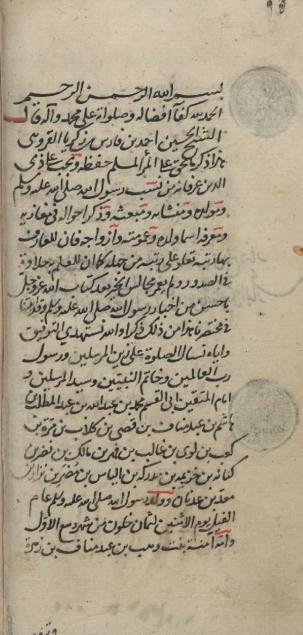 بسم الله الرحمن الرحيم
الحمد لله كفا افضاله وصلواته على محمد وآله قال
الشيخ احمد بن فارس بن زكريا القزويني
هذا ذكر ما يحق على المرء المسلم حفظه ويجب على ذي
الدين عرفانه من نسب رسول الله صلى الله عليه وسلم
ومولده ومنشاه ومبعثه وذكر احواله في مغازيه
ومعرفة اسماء ولده وعمومته وازواجه فان للعارف
بها رتبة تعلو على رتبة من جهلها كما ان للعلم به حلاوة
في الصدور ولم يعمر مجالس الخير بعد كتاب الله عز وجل
باحسن من اخبار رسول الله صلى الله عليه وسلم وقد
في مختصرنا هذا من ذلك ذكرا والله نستهدي التوفيق
واياه نسال الصلوة على زين المرسلين ورسول
رب العالمين وخاتم النبيين وسيد المرسلين و
امام المتقين ابي القسم محمد بن عبد الله بن عبد المطلب بن
هاشم بن عبد مناف بن قصي بن كلاب بن مرة بن
كعب بن لوي بن غالب بن فهر بن مالك بن نضر بن
كنانة بن خزيمة بن مدركة بن الياس بن مضر بن نزار بن
معد بن عدنان وولد رسول الله صلى الله عليه وسلم عام
الفيل يوم الاثنين لثمان خلون من شهر ربيع الاول
وامه آمنة بنت وهب بن عبد مناف بن زهرة